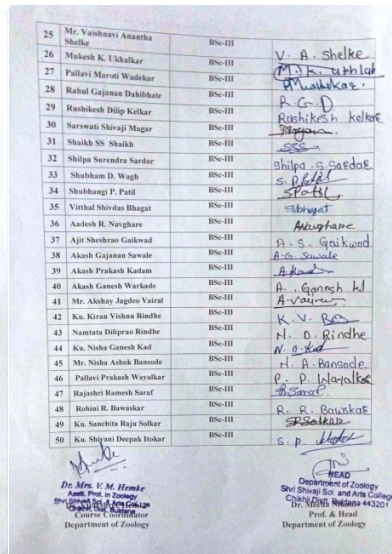 25 Mr. Vaishnavi Anantha Shelke BSc-III V. A. Shelke
26 Mukesh K. Ukhalkar BSc-III M. K. Ukhlak
27 Pallavi Maroti Wadekar BSc-III
28 Rahul Gajanan Dahibhate BSc-III R. G. D
29 Rushikesh Dilip Kelkar BSc-III Rushikesh Kelkar
30 Sarswati Shivaji Magar BSc-III
31 Shaikh SS Shaikh BSc-III SSS
32 Shilpa Surendra Sardar BSc-III Shilpa . S. Saedae
33 Shubham D. Wagh BSc-III
34 Shubhangi P. Patil BSc-III SPatil
35 Vitthal Shivdas Bhagat BSc-III
36 Aadesh R. Navghare BSc-III
37 Ajit Sheshrao Gaikwad BSc-III A. S. Gaikwad
38 Akash Gajanan Sawale BSc-III A.G. Sawale
39 Akash Prakash Kadam BSc-III
40 Akash Ganesh Warkade BSc-III A. Ganesh W
41 Mr. Akshay Jagdeo Vairal BSc-III
42 Ku. Kiran Vishnu Rindhe BSc-III K. V.
43 Namtata Diliprao Rindhe BSc-III N. D. Rindhe
44 Ku. Nisha Ganesh Kad BSc-III N. G. Kad
45 Mr. Nisha Ashok Bansode BSc-III N. A. Bansode.
46 Pallavi Prakash Wayalkar BSc-III P. P. Wayalkar
47 Rajashri Ramesh Saraf BSc-III R.Saraf
48 Rohini R. Bawaskar BSc-III R. R. Bawskae
49 Ku. Sanchita Raju Solkar BSc-III RSolkar
50 Ku. Shivani Deepak Itokar BSc-III S. P.
Dr. Mrs. V. M. Hemke
Asstt. Prof. in Zoology
Shri Shivaji Sci. & Arts College
Chikhli, Dist. Buldana
Course Coordinator
Department of Zoology
HEAD
Department of Zoology
Shri Shivaji Sci. and Arts College
Chikhli Distt. Buldana 443201
Dr. Meena
Prof. & Head
Department of Zoology